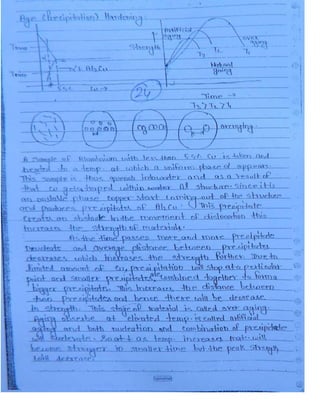 Age (Precipitation) Hardening:
Strength
Artificial
aging
over
aging
T3
T2
T1
Natural
aging
Time →
T3>T2>T1
Tmax
Tmin
5.5%
Cu →
24
overaging
A sample of Aluminium with less than 5.5% Cu is taken and
heated to a temp. at which a uniform phase α appears
This sample is then quench in water and as a result of
that Cu gets trapped within Al structure since it is
an unstable phase copper start coming out of the structure
and produces precipitates of Al2Cu. This precipitate
creates an obstacle in the movement of dislocation this
increases the strength of material.
As the time passes more and more precipitate
nucleate and average distance between precipitates
decreases which increases the strength further. Due to
limited amount of Cu, precipitation will stop at a particular
point and smaller precipitates combined together to form
bigger precipitate. This increases the distance between
the precipitates and hence there will be decrease
in strength. This stage of material is called over aging.
Aging observe at elevated temp. is called artificial
aging and both nucleation and combination of precipitate
will accelerate. So at temp increases material will
become stronger in smaller time but the peak strength
will decrease.